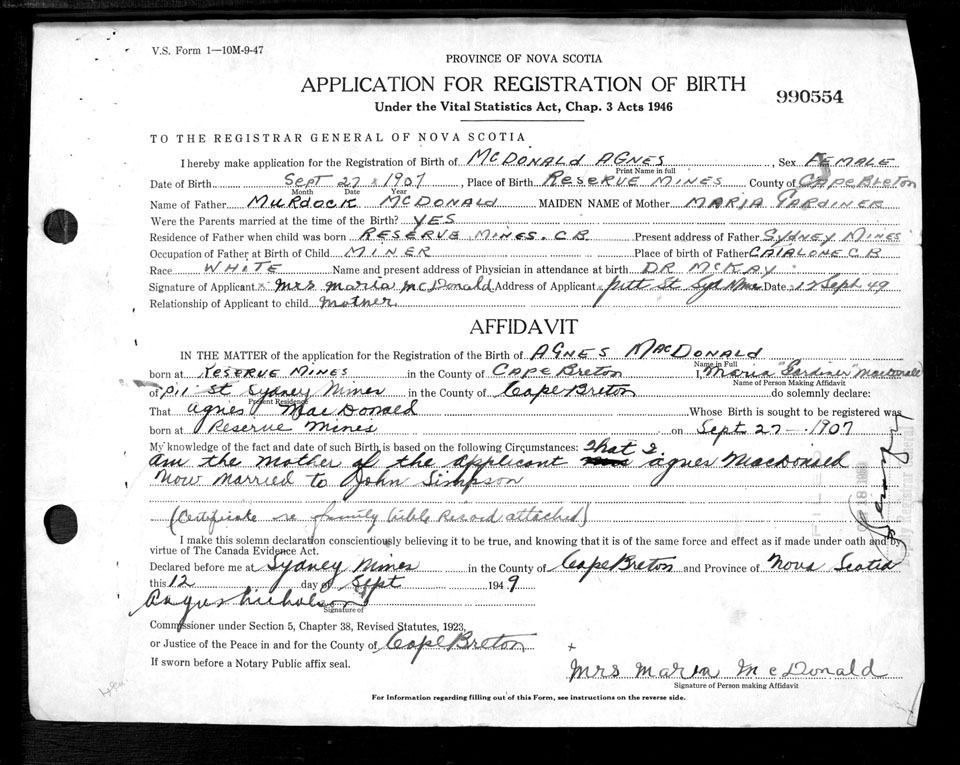 V.S. Form 1—10M-9-47
PROVINCE OF NOVA SCOTIA
APPLICATION FOR REGISTRATION OF BIRTH
990554
Under the Vital Statistics Act, Chap. 3 Acts 1946
TO THE REGISTRAR GENERAL OF NOVA SCOTIA
I hereby make application for the Registration of Birth of McDONALD AGNES, Sex FEMALE
Print Name in full
Date of Birth SEPT 27 1907, Place of Birth RESERVE MINES County of CAPE BRETON
Month Date Year
Name of Father MURDOCK McDONALD MAIDEN NAME of Mother MARIA GARDINER
Were the Parents married at the time of the Birth? YES
Residence of Father when child was born RESERVE MINES. C B Present address of Father SYDNEY MINES
Occupation of Father at Birth of Child MINER Place of birth of Father CATALONE C B
Race WHITE Name and present address of Physician in attendance at birth DR McKAY
Signature of Applicant x Mrs Maria McDonald Address of Applicant Pitt St Syd Mines Date 12 Sept 49
Relationship of Applicant to child Mother
AFFIDAVIT
IN THE MATTER of the application for the Registration of the Birth of AGNES MACDONALD
Name in Full
born at RESERVE MINES in the County of CAPE BRETON I, Maria "Gardiner" MacDonald
Name of Person Making Affidavit
of Pitt St Sydney Mines in the County of Cape Breton do solemnly declare:
Present Residence
That Agnes MacDonald Whose Birth is sought to be registered was
born at Reserve Mines on Sept 27 - 1907
My knowledge of the fact and date of such Birth is based on the following Circumstances: That I
am the mother of the applicant Agnes MacDonald
Now Married to John Simpson
(Certificate re family bible Record attached)
I make this solemn declaration conscientiously believing it to be true, and knowing that it is of the same force and effect as if made under oath and by
virtue of The Canada Evidence Act.
Declared before me at Sydney Mines in the County of Cape Breton and Province of Nova Scotia
this 12 day of Sept 1949
Angus Nicholson
Signature of
Commissioner under Section 5, Chapter 38, Revised Statutes, 1923,
or Justice of the Peace in and for the County of Cape Breton
If sworn before a Notary Public affix seal.
x
Mrs Maria McDonald
Signature of Person making Affidavit
For Information regarding filling out of this Form, see instructions on the reverse side.